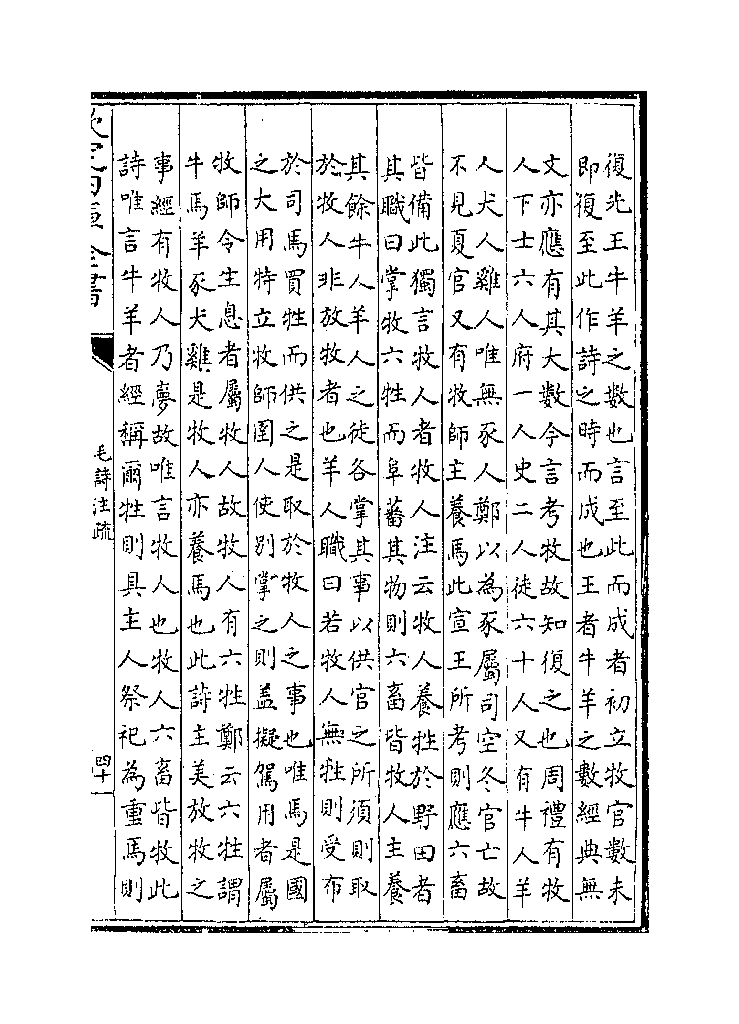 復先王牛羊之數也言至此而成者初立牧官數未
即復至此作詩之時而成也王者牛羊之數經典無
文亦應有其大數今言考牧故知復之也周禮有牧
人下士六人府一人史二人徒六十人又有牛人羊
人犬人雞人唯無豕人鄭以為豕屬司空冬官亡故
不見夏官又有牧師主養馬此宣王所考則應六畜
皆備此獨言牧人者牧人注云牧人養牲於野田者
其職曰掌牧六牲而阜蕃其物則六畜皆牧人主養
其餘牛人羊人之徒各掌其事以供官之所須則取
於牧人非放牧者也羊人職曰若牧人無牲則受布
於司馬買牲而供之是取於牧人之事也唯馬是國
之大用特立牧師圉人使別掌之則蓋擬駕用者屬
牧師令生息者屬牧人故牧人有六牲鄭云六牲謂
牛馬羊豕犬雞是牧人亦養馬也此詩主美放牧之
事經有牧人乃夢故唯言牧人也牧人六畜皆牧此
詩唯言牛羊者經稱爾牲則具主人祭祀為重馬則
欽定四庫全書
毛詩注疏
四十一